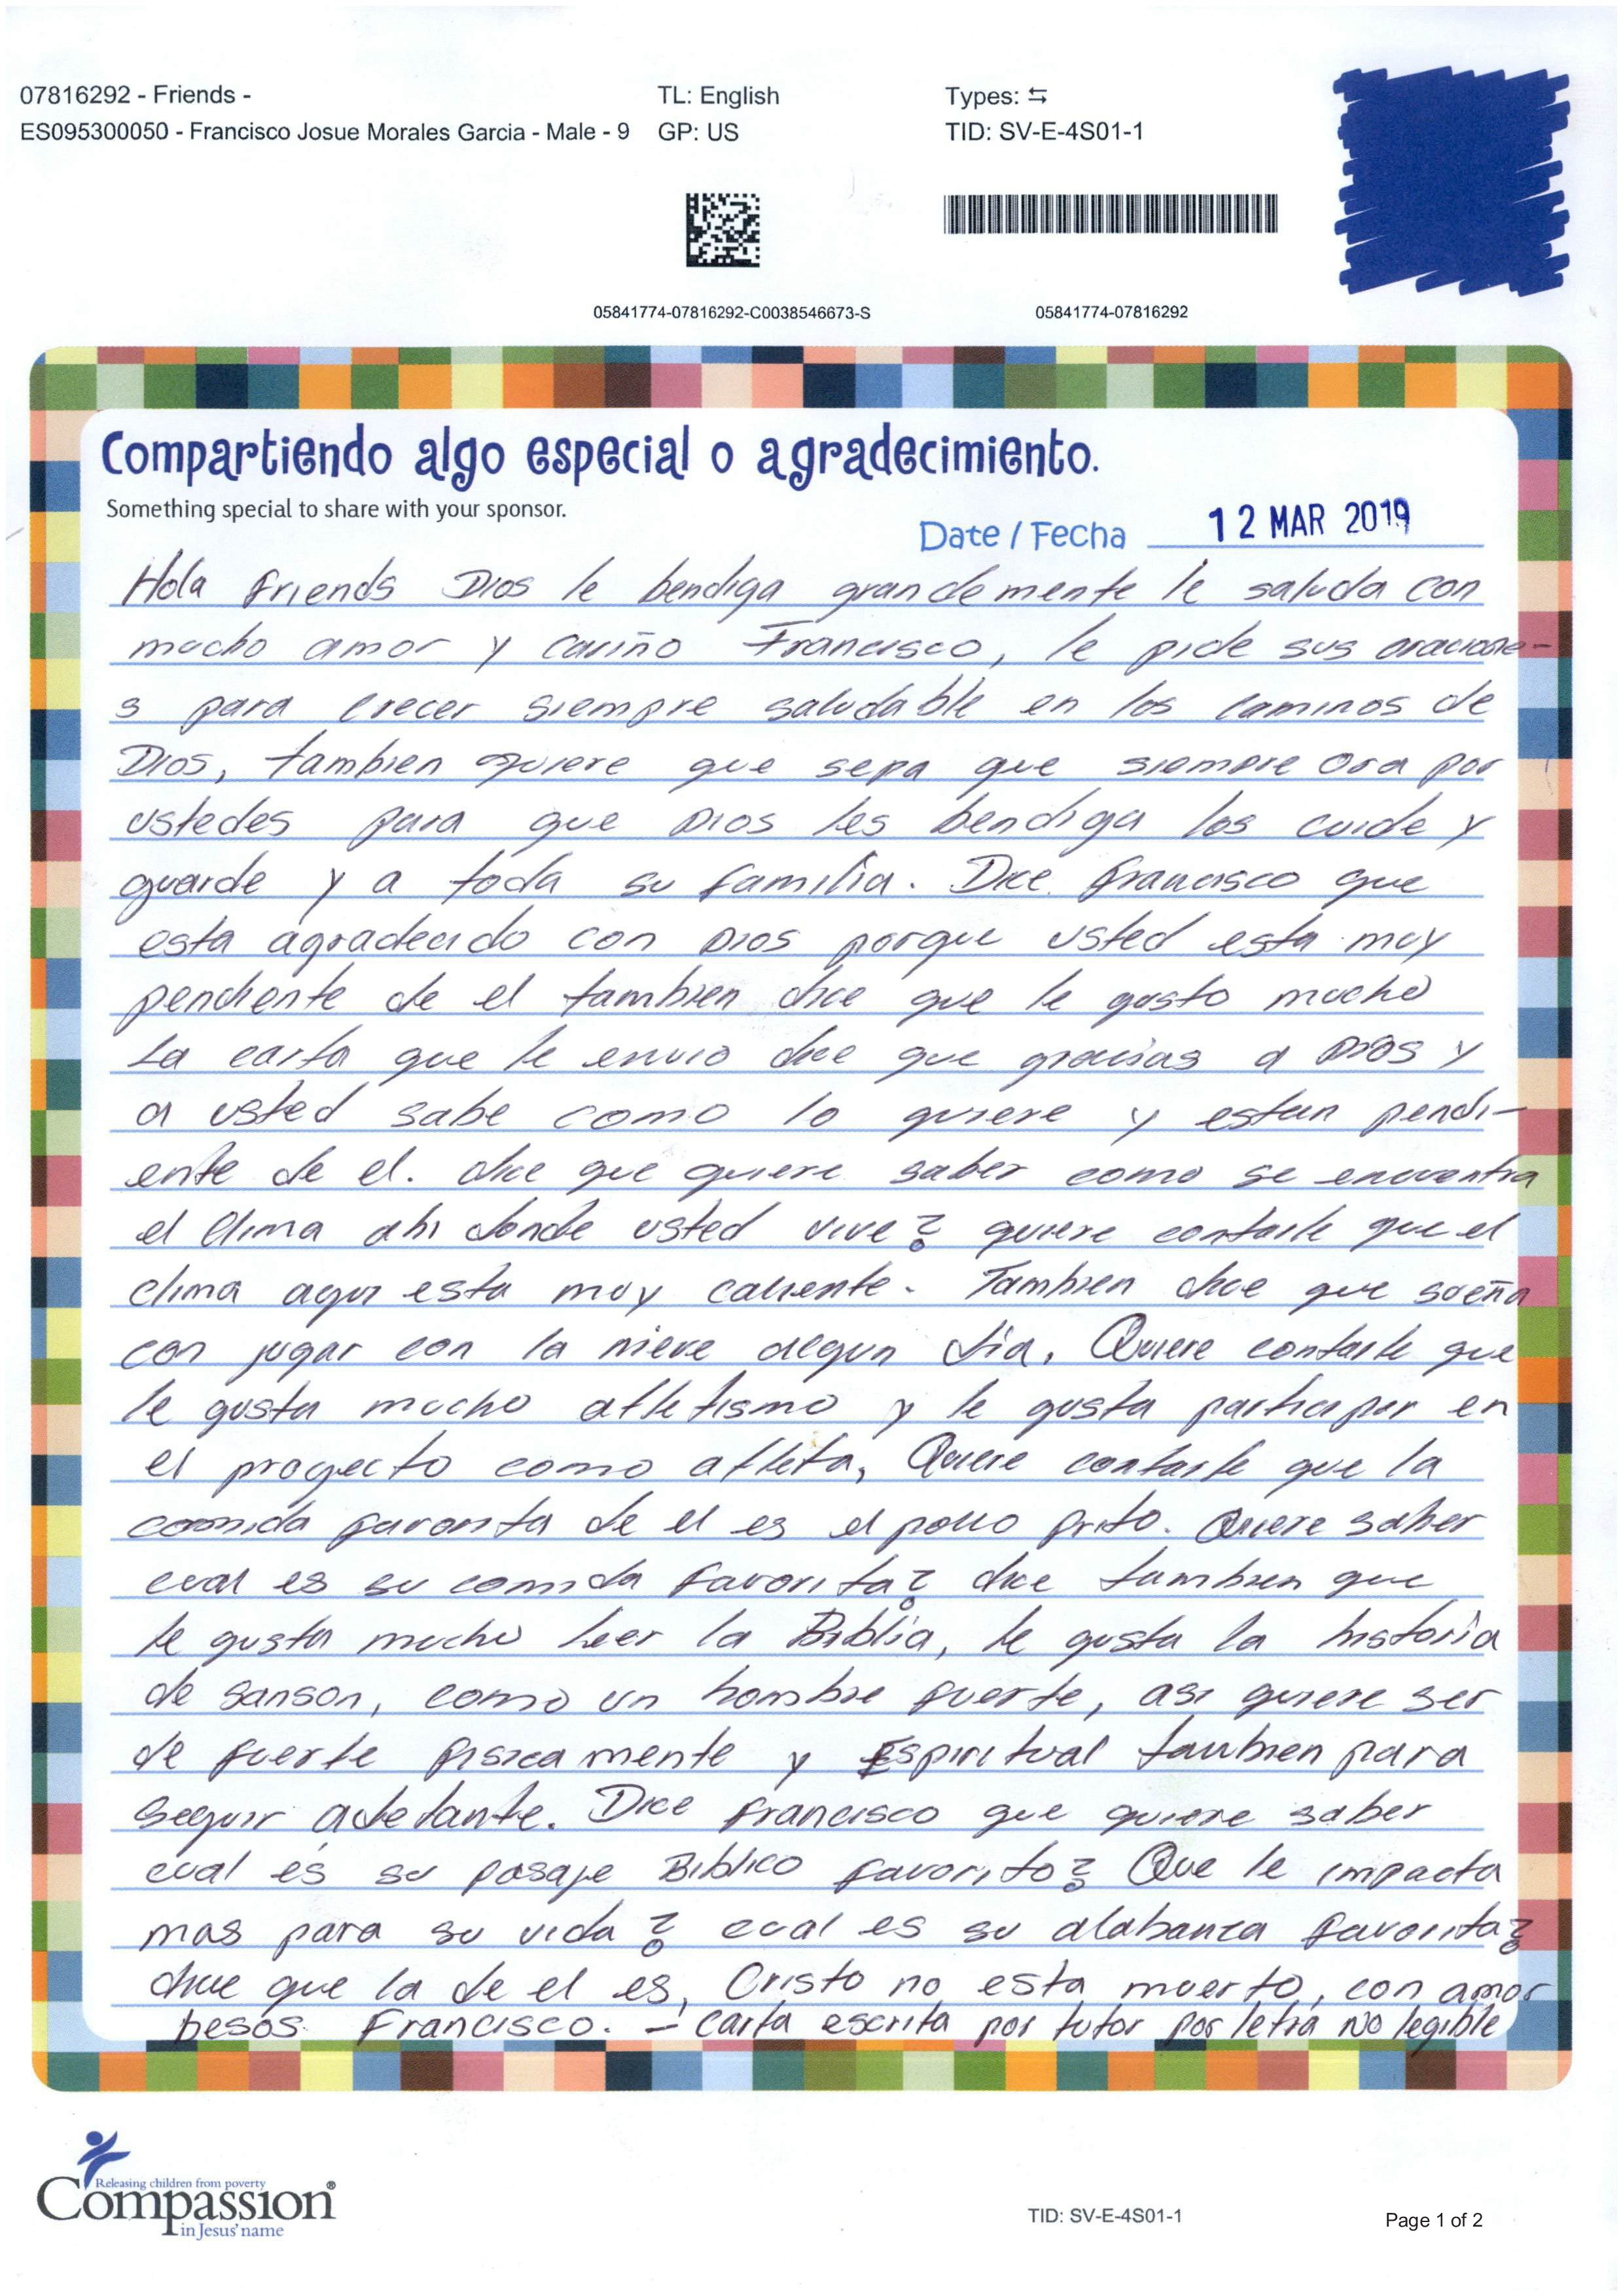 07816292 - Friends -
TL: English
Types: ⇆
ES095300050 - Francisco Josue Morales Garcia - Male - 9
GP: US
TID: SV-E-4S01-1
05841774-07816292-C0038546673-S
05841774-07816292
Compartiendo algo especial o agradecimiento.
Something special to share with your sponsor.
Date / Fecha 12 MAR 2019
Hola friends Dios le bendiga grandemente le saluda con
mucho amor y cariño Francisco, le pide sus oracione-
s para crecer siempre saludable en los caminos de
Dios, tambien quiere que sepa que siempre ora por
ustedes para que Dios les bendiga los cuide y
guarde y a toda su familia. Dice francisco que
esta agradecido con Dios porque usted esta muy
pendiente de el tambien dice que le gusto mucho
La carta que le envio dice que gracias a Dios y
a usted sabe como lo quiere y estan pendi-
ente de el. dice que quiere saber como se encuentra
el Clima ahi donde usted vive? quiere contarle que el
clima aqui esta muy caliente. Tambien dice que sueña
con jugar con la nieve algun dia. Quiere contarle que
le gusta mucho atletismo y le gusta participar en
el proyecto como atleta, Quiere contarle que la
comida favorita de el es el pollo frito. Quiere saber
cual es su comida favorita? dice tambien que
le gusta mucho leer la Biblia, le gusta la historia
de sanson, como un hombre fuerte, asi quiere ser
de fuerte fisicamente y Espiritual tambien para
seguir adelante. Dice francisco que quiere saber
cual es su pasaje Biblico favorito? Que le impacta
mas para su vida? cual es su alabanza favorita?
dice que la de el es, Cristo no esta muerto, con amor
besos Francisco. - Carta escrita por tutor por letra no legible
Releasing children from poverty
Compassion®
in Jesus' name
TID: SV-E-4S01-1
Page 1 of 2